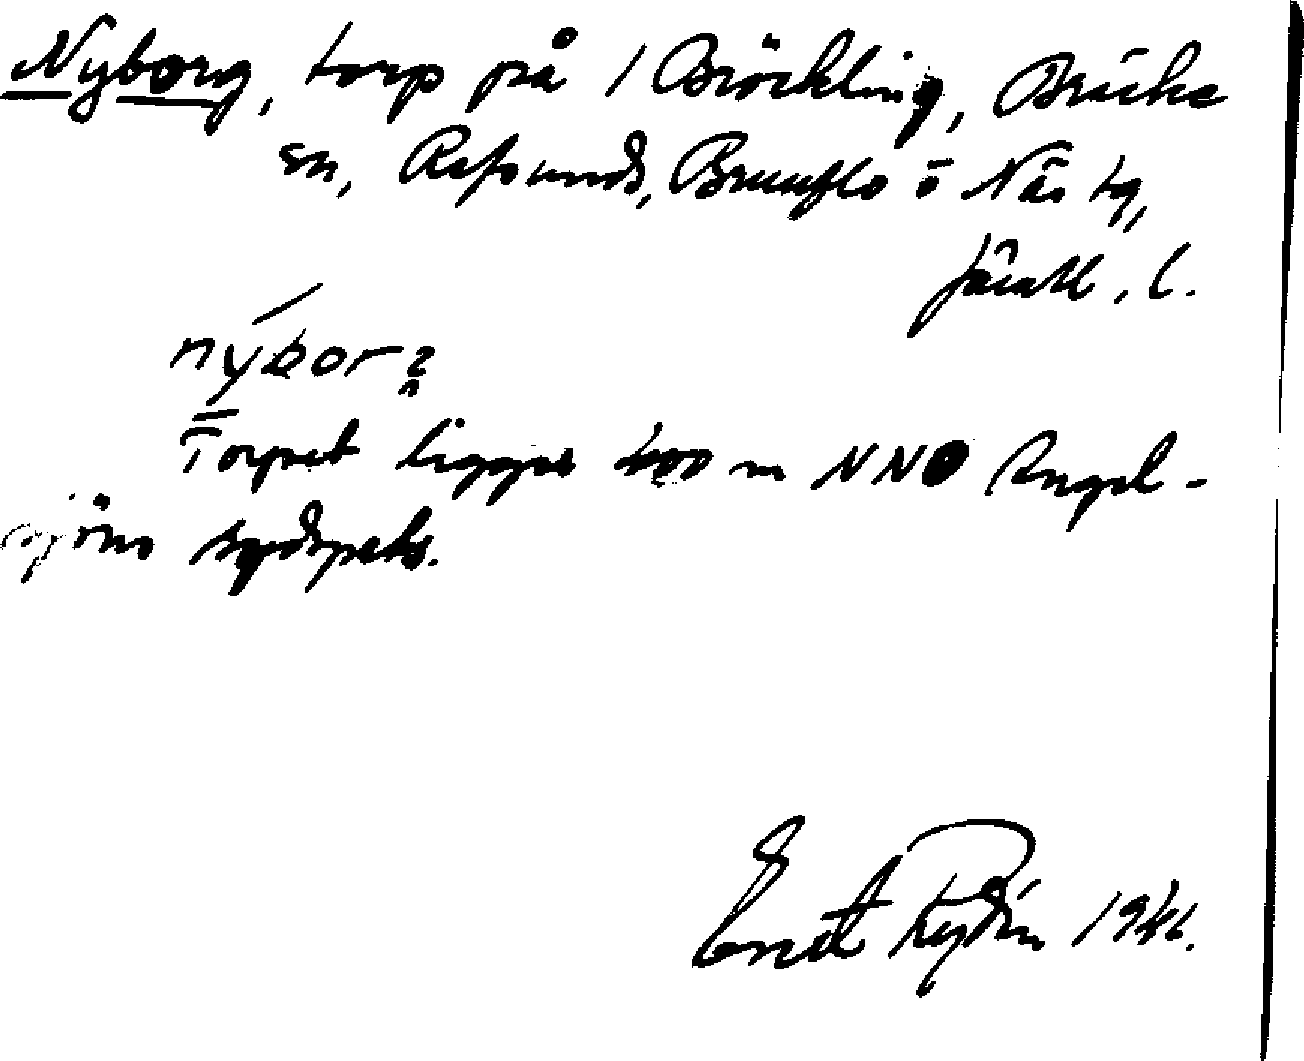 Nyborg, torp på 1 Bröckling, Bräcke
sn, Refsunds, Brunflo o Näs tg,
Jämtl. l.
nýbor
Torpet ligger 400 m NNO Angel-
sjöns sydspets.
Ernst Rydén 1941.